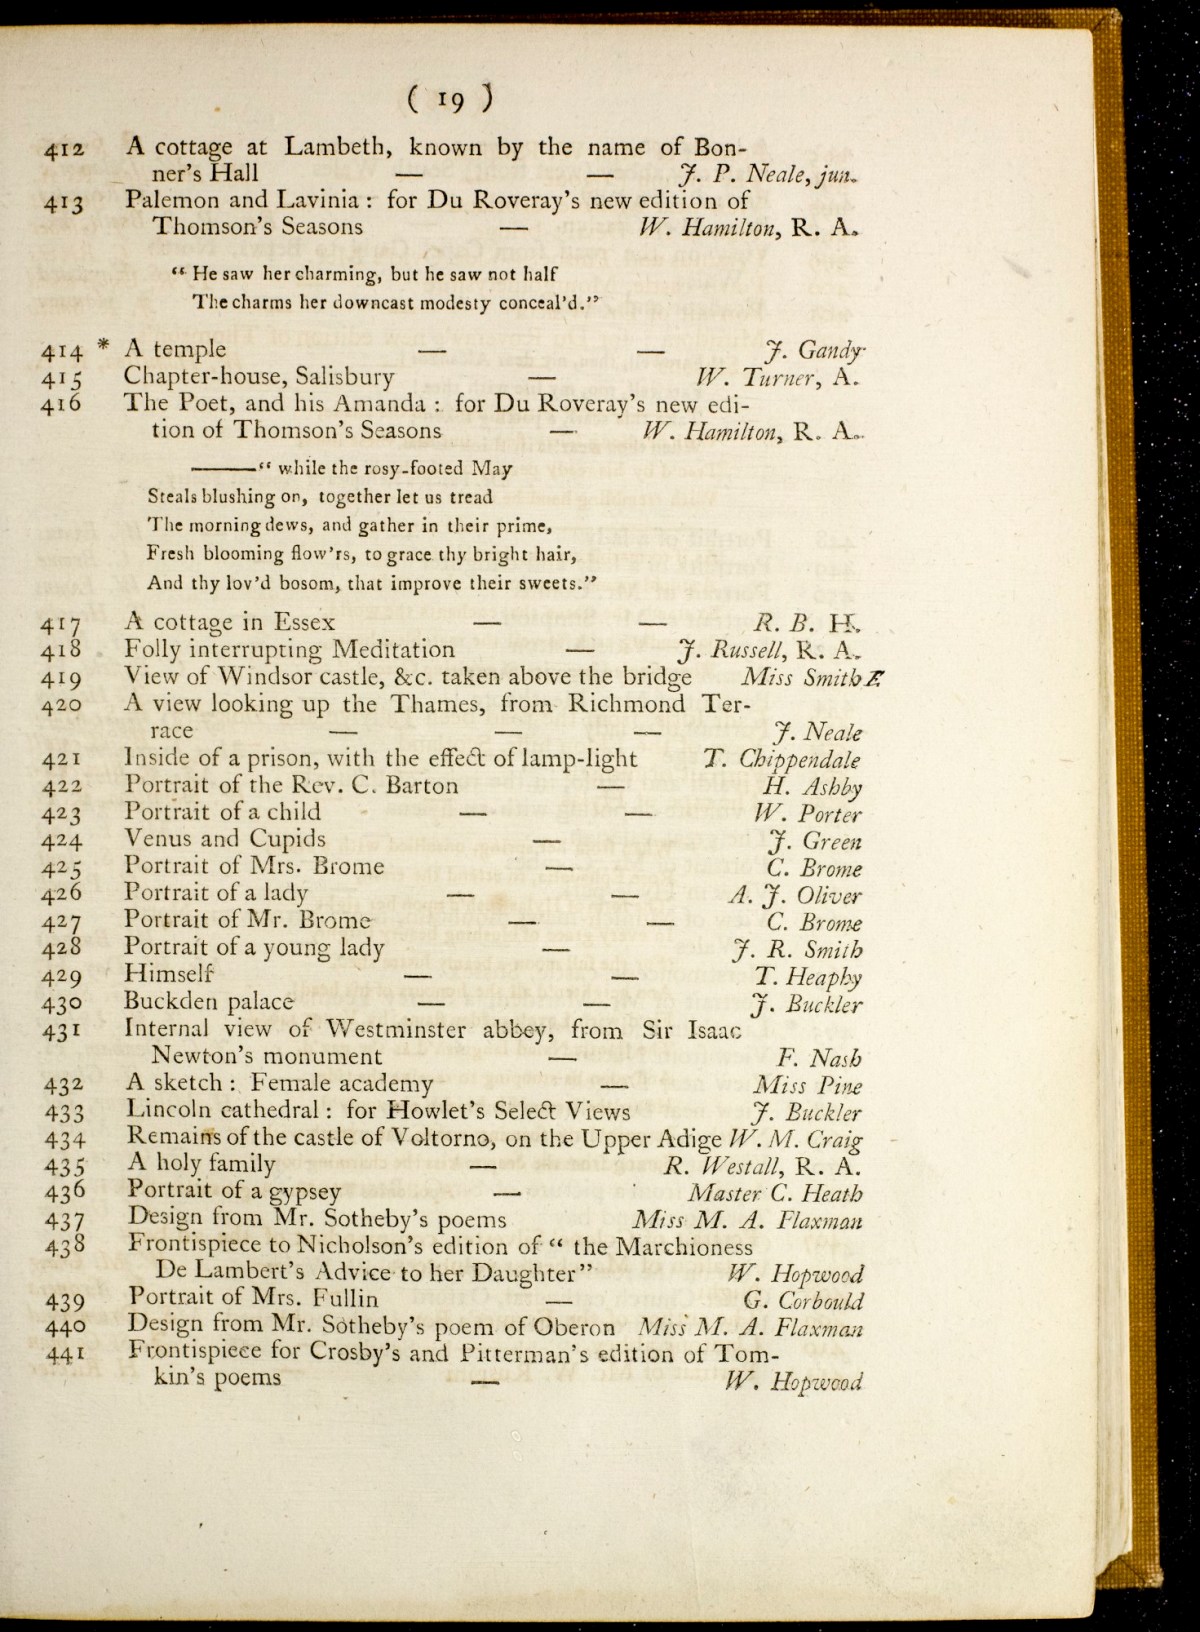 ( 19 )
412 A cottage at Lambeth, known by the name of Bon-
ner's Hall — — J. P. Neale, jun.
413 Palemon and Lavinia : for Du Roveray's new edition of
Thomson's Seasons — W. Hamilton, R. A.
“ He saw her charming, but he saw not half
The charms her downcast modesty conceal'd.”
414 * A temple — — J. Gandy
415 Chapter-house, Salisbury — W. Turner, A.
416 The Poet, and his Amanda : for Du Roveray's new edi-
tion of Thomson's Seasons — W. Hamilton, R. A.
———“ while the rosy-footed May
Steals blushing on, together let us tread
The morning dews, and gather in their prime,
Fresh blooming flow'rs, to grace thy bright hair,
And thy lov'd bosom, that improve their sweets.”
417 A cottage in Essex — — R. B. H.
418 Folly interrupting Meditation — J. Russell, R. A.
419 View of Windsor castle, &c. taken above the bridge Miss Smith E
420 A view looking up the Thames, from Richmond Ter-
race — — — J. Neale
421 Inside of a prison, with the effect of lamp-light T. Chippendale
422 Portrait of the Rev. C. Barton — H. Ashby
423 Portrait of a child — — W. Porter
424 Venus and Cupids — J. Green
425 Portrait of Mrs. Brome — C. Brome
426 Portrait of a lady — — A. J. Oliver
427 Portrait of Mr. Brome — — C. Brome
428 Portrait of a young lady — J. R. Smith
429 Himself — — T. Heaphy
430 Buckden palace — — J. Buckler
431 Internal view of Westminster abbey, from Sir Isaac
Newton's monument — F. Nash
432 A sketch : Female academy — Miss Pine
433 Lincoln cathedral : for Howlet's Select Views J. Buckler
434 Remains of the castle of Voltorno, on the Upper Adige W. M. Craig
435 A holy family — R. Westall, R. A.
436 Portrait of a gypsey — Master C. Heath
437 Design from Mr. Sotheby's poems Miss M. A. Flaxman
438 Frontispiece to Nicholson's edition of “ the Marchioness
De Lambert's Advice to her Daughter” W. Hopwood
439 Portrait of Mrs. Fullin — G. Corbould
440 Design from Mr. Sotheby's poem of Oberon Miss M. A. Flaxman
441 Frontispiece for Crosby's and Pitterman's edition of Tom-
kin's poems — W. Hopwood